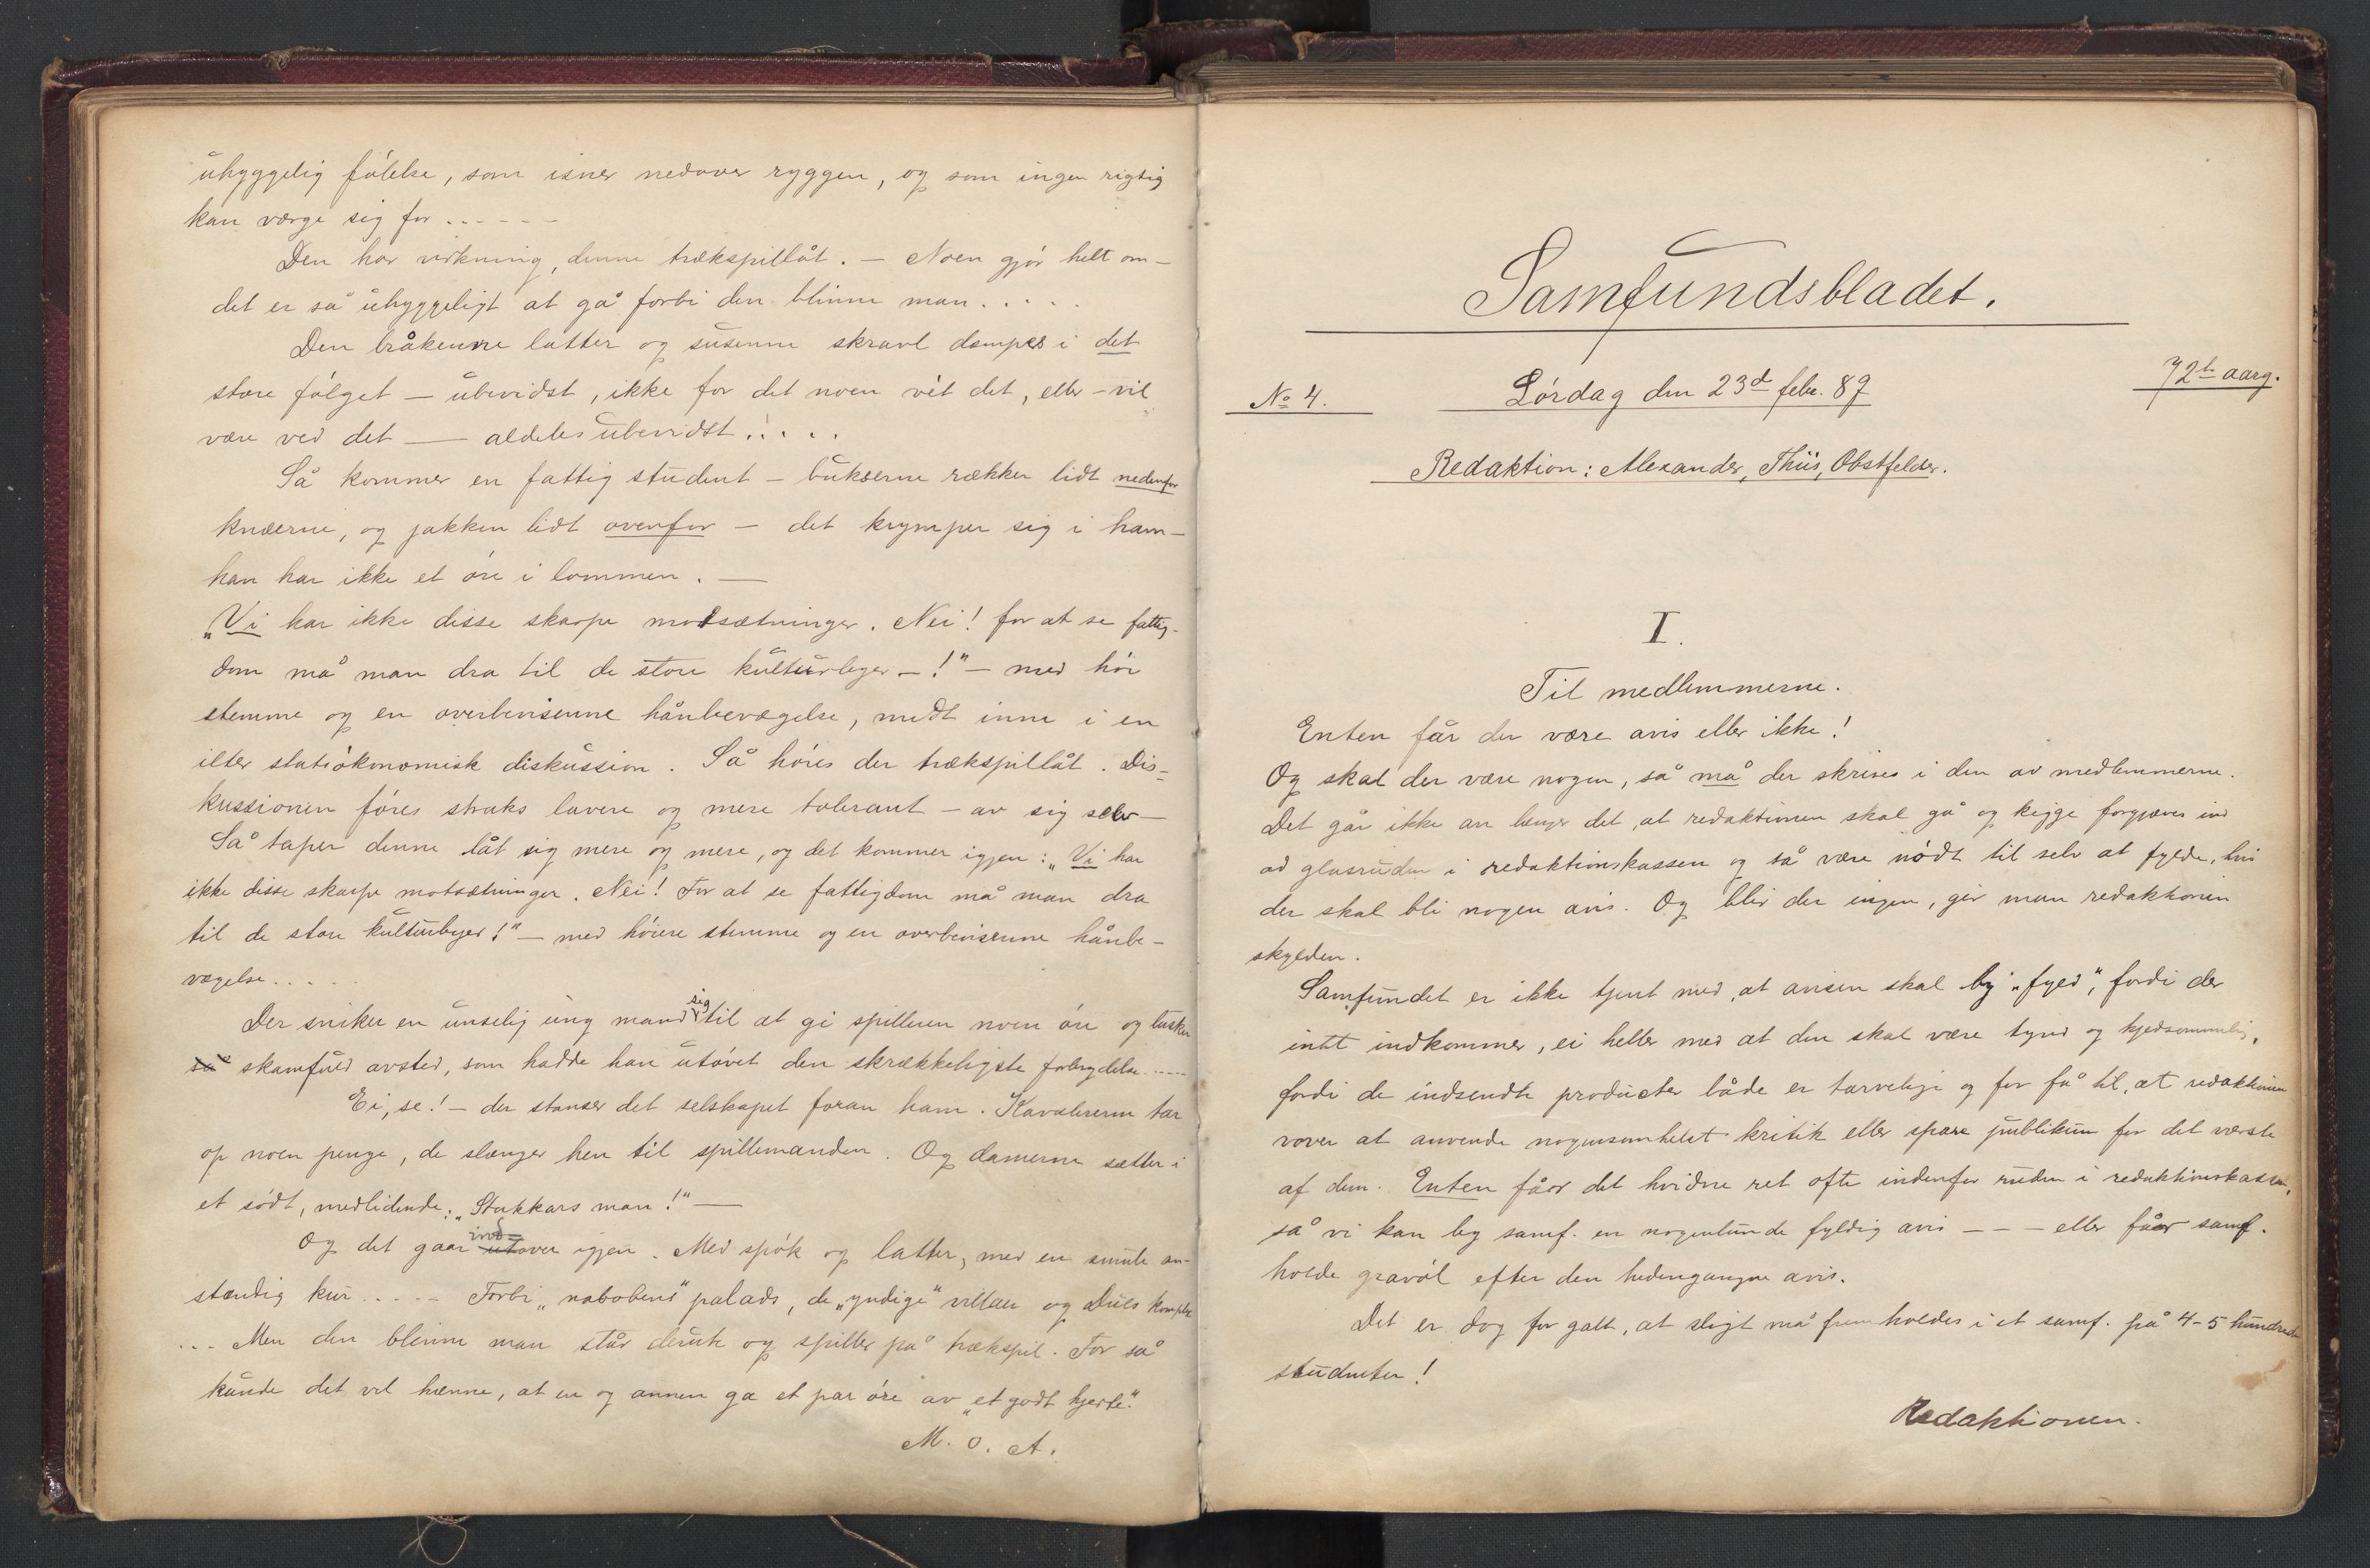 uhyggelig følelse, som isner nedover ryggen, og som ingen rigtig
kan værge sig for ......
Den har virkning, denne trækspillåt. – Noen gjør helt om –
det er så uhyggeligt at gå forbi den blinne man.....
Den bråkenne latter og susenne skravl dempes i det
store følget – ubevidst, ikke for det noen vét det, eller – vil
være ved det — aldeles ubevidst.....
Så kommer en fattig student – bukserne rækker lidt nedenfor
knæerne, og jakken lidt ovenfor – det krymper sig i ham –
han har ikke et øre i lommen. —
„Vi har ikke disse skarpe motsætninger. Nei! for at se fattig-
dom må man dra til de store kulturbyer – !" – med høi
stemme og en overbevisenne hånbevægelse, midt inne i en
ilter statsøkonomisk diskussion. Så høres der trækspillåt. Dis-
kussionen føres straks lavere og mere tolerant – av sig selv –
Så taper denne låt sig mere og mere, og det kommer igjen: „Vi har
ikke disse skarpe motsætninger. Nei! For at se fattigdom må man dra
til de store kulturbyer!" – med høiere stemme og en overbevisenne hånbe-
vægelse.....
Der sniker en unselig ung mand sig til at gi spilleren noen øre og lusker
så skamfuld avsted, som hadde han utøvet den skrækkeligste forbrydelse .....
Ei, se! – der stanser det selskapet foran ham. Kavalererne tar
op noen penge, de slænger hen til spillemanden. Og damerne sætter i
et sødt, medlidende: „Stakkars man!" —
Og det gaar ind- utover igjen. Med spøk og latter, med en smule an-
stændig kur ..... Forbi „nabobens" palads, de „yndige" villaer og Dues
... Men den blinne man står denne og spiller på trækspil. For så
kunde det vel hænne, at en og annen ga et par øre av „et godt hjerte".
M. O. A.
Samfundsbladet.
No 4.
Lørdag den 23d febr. 89
72te aarg.
Redaktion: Alexander, Thiis, Obstfelder.
I.
Til medlemmerne.
Enten får der være avis eller ikke!
Og skal der være nogen, så må der skrives i den av medlemmerne.
Det går ikke an længer det, at redaktionen skal gå og kigge forgjæves ind
ad glasruden i redaktionskassen og så være nødt til selv at fylde, hvis
der skal bli nogen avis. Og blir der ingen, gir man redaktionen
skylden.
Samfundet er ikke tjent med, at avisen skal by „fyld", fordi der
intet indkommer, ei heller med at den skal være tynd og kjedsommelig,
fordi de indsendte producter både er tarvelige og for få til, at redaktionen
vover at anvende nogensomhelst kritik eller spare publikum for det værste
af dem. Enten får det hvidne ret ofte indenfor ruden i redaktionskassen,
så vi kan by samf. en nogenlunde fyldig avis – – – eller får samf.
holde gravøl efter den hedengangne avis.
Det er dog for galt, at sligt må fremholdes i et samf. på 4–5 hundrede
studenter!
Redaktionen.